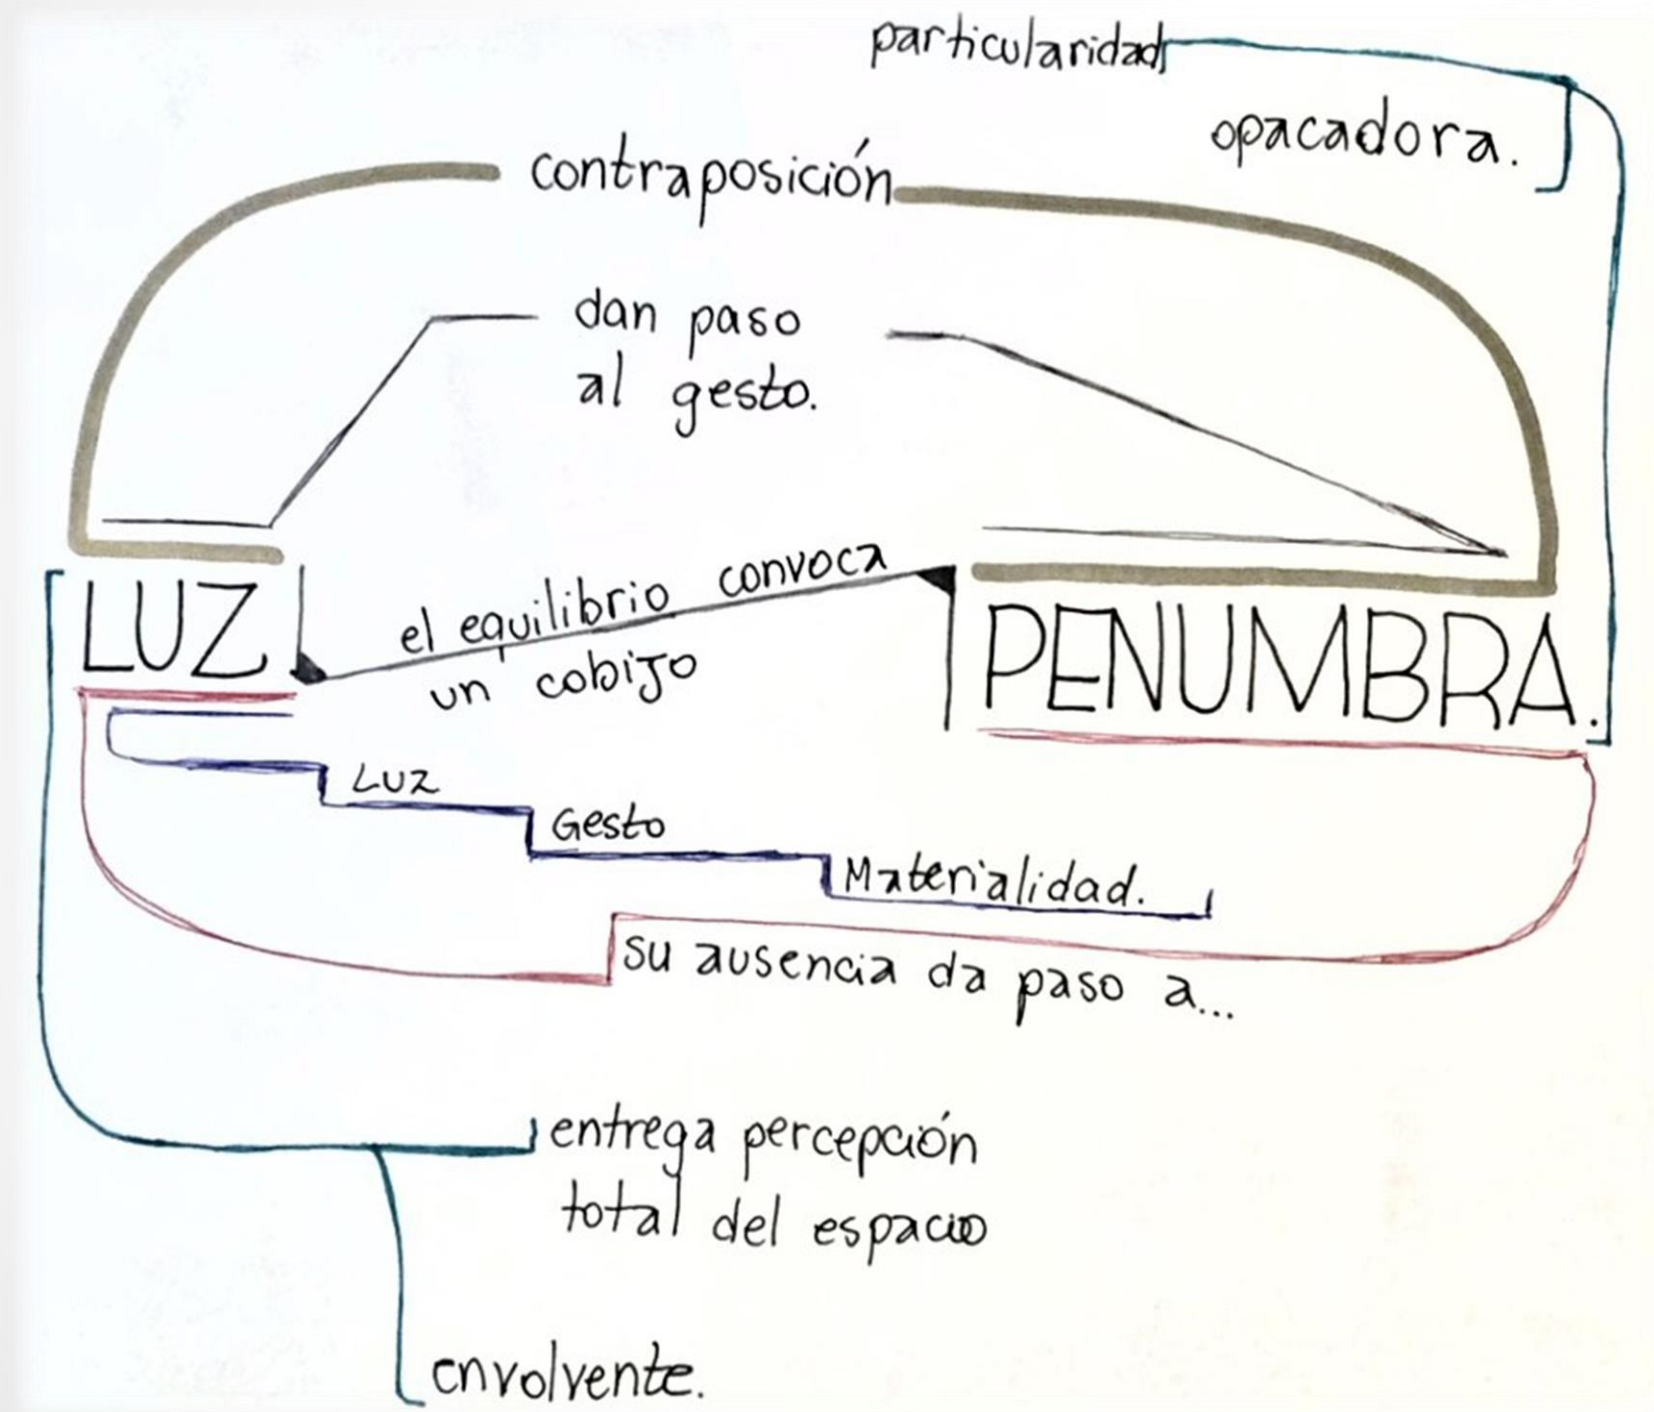 particularidad
opacadora.
contraposición
dan paso
al gesto.
LUZ
el equilibrio convoca
un cobijo
PENUMBRA.
LUZ
Gesto
Materialidad.
su ausencia da paso a...
entrega percepción
total del espacio
envolvente.